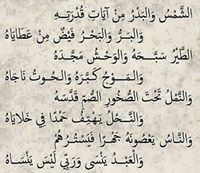 الشَّمْسُ وَالبَدْرُ مِنْ آيَاتِ قُدْرَتِهِ
وَالبَرُّ وَالبَحْرُ فَيْضٌ مِنْ عَطَايَاهُ
الطَّيْرُ سَبَّحَهُ وَالوَحْشُ مَجَّدَهُ
وَالمَوْجُ كَبَّرَهُ وَالحُوتُ نَاجَاهُ
وَالنَّمْلُ تَحْتَ الصُّخُورِ الصُّمِّ قَدَّسَهُ
وَالنَّحْلُ يَهْتِفُ حَمْدًا فِي خَلَايَاهُ
وَالنَّاسُ يَعْصُونَهُ جَهْرًا فَيَسْتُرُهُمْ
وَالعَبْدُ يَنْسَى وَرَبِّي لَيْسَ يَنْسَاهُ